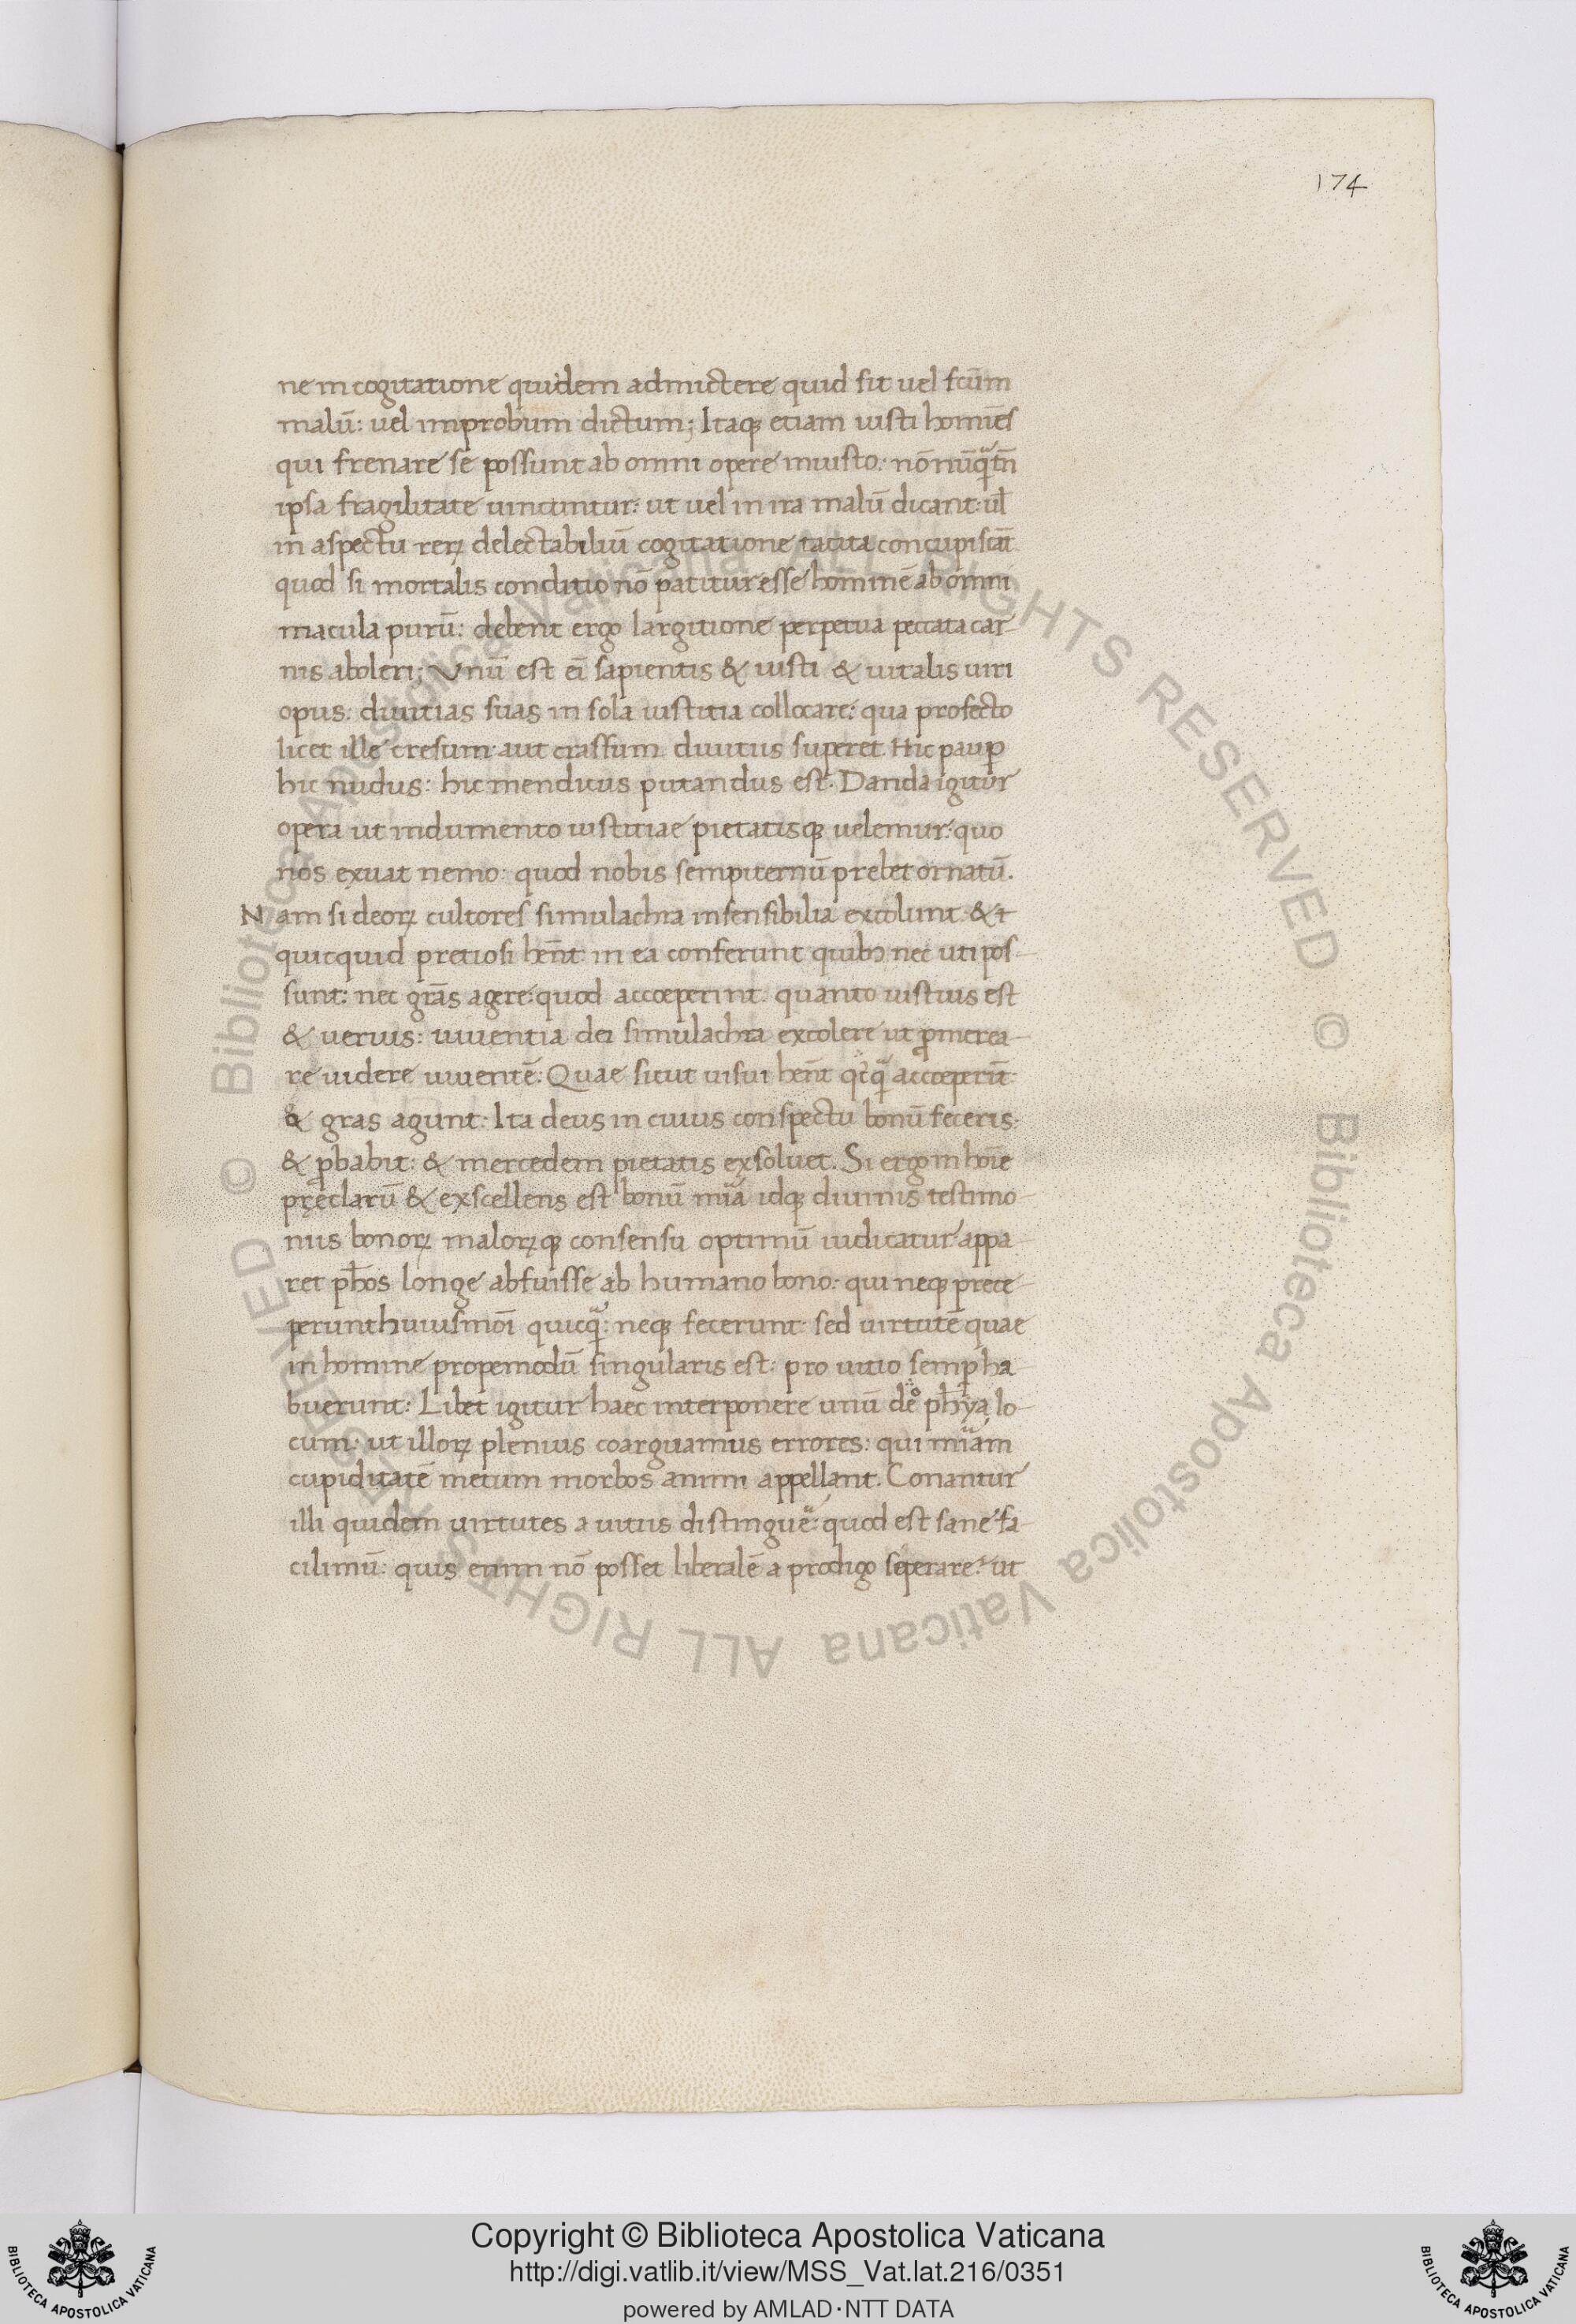 174
ne in cogitatione quidem admictere quid sit uel fcūm
malū: uel improbum dictum; Itaq; etiam iusti homīes
qui frenare se possunt ab omni opere iniusto: nō nūqᵃtn̄
ipsa fragilitate uincuntur: ut uel in ira malū dicant: ul̄
in aspectu reꝝ delectabiliū cogitatione tacita concupiscāt
quod si mortalis conditio nō patitur esse hominē ab omni
macula purū: debent ergo largitione perpetua peccata car-
nis aboleri; Vnū est eī sapientis & iusti & uitalis uiri
opus: diuitias suas in sola iustitia collocare: qua profecto
licet ille cresum aut crassum diuitiis superet. Hic paup̄
hic nudus: hic mendicus putandus est. Danda igitur
opera ut indumento iustitiae pietatisq; uelemur: quo
nos exuat nemo: quod nobis sempiternū prebet ornatū.
Nam si deoꝝ cultores simulachra insensibilia excolunt: & t
quicquid pretiosi hēnt in ea conferunt quibꝫ nec uti pos-
sunt: nec grās agere: quod accoeperint. quanto iustius est
& uerius: uiuentia dei simulachra excolere ut ꝓmerea-
re uidere uiuentē: Quae sicut uisui hēnt qcqᵃ accoeperūt:
& gras agunt: Ita deus in cuius conspectu bonū feceris:
& ꝓbabit: & mercedem pietatis exsoluet. Si ergo in hoīe
pręclarū & exscellens est bonū mīa idq; diuinis testimo-
niis bonoꝝ maloꝝq; consensu optimū iudicatur appa-
ret ph̄os longe abfuisse ab humano bono: qui neq; prece-
perunt huiusmōi quicqᵃ: neq; fecerunt sed uirtutē quae
in homine propemodū singularis est: pro uitio semꝑ ha-
buerunt: Libet igitur haec interponere unū de ph̄ya lo-
cum: ut illoꝝ plenius coarguamus errores: qui mīam
cupiditatē metum morbos animi appellant. Conantur
illi quidem uirtutes a uitiis distinguē: quod est sane fa-
cilimū: quis enim nō posset liberalē a prodigo seperare: ut
© Biblioteca Apostolica Vaticana ALL RIGHTS RESERVED © Biblioteca Apostolica Vaticana ALL RIGHTS RESERVED
BIBLIOTECA APOSTOLICA VATICANA
Copyright © Biblioteca Apostolica Vaticana
http://digi.vatlib.it/view/MSS_Vat.lat.216/0351
powered by AMLAD·NTT DATA
BIBLIOTECA APOSTOLICA VATICANA